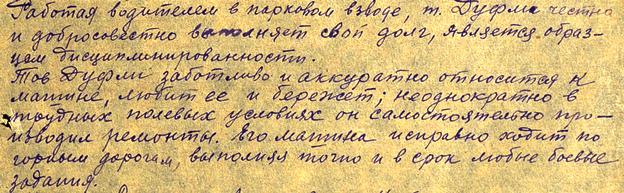 Работая водителем в парковом взводе, т. Дуфли честно
и добросовестно выполняет свой долг, является образ-
цем дисциплинированности.
Тов Дуфли заботливо и аккуратно относится к
машине, любит ее и бережет; неоднократно в
трудных полевых условиях он самостоятельно про-
изводил ремонты. Его машина исправно ходит по
горным дорогам, выполняя точно и в срок любые боевые
задания.